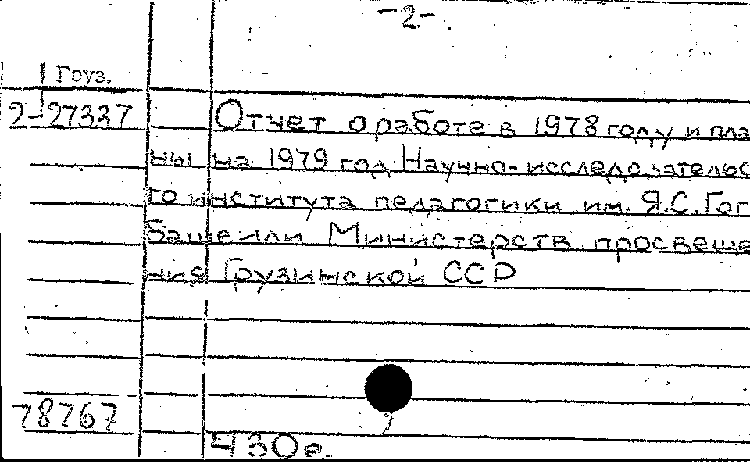 -2-
Груз.
2-27337
Отчет о работе в 1978 году и пла
ны на 1979 год Научно-исследовательс
го института педагогики им. Я.С. Гог
башвили Министерств просвеще
ния Грузинской ССР
78767
430 е.